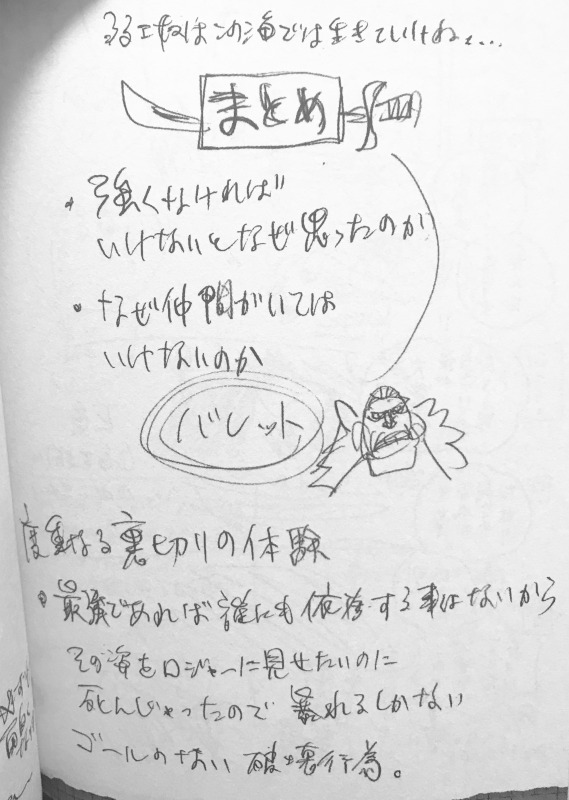 弱え奴はこの海では生きていけねェ…
まとめ
・強くなければ
いけないとなぜ思ったのか
・なぜ仲間がいては
いけないのか
バレット
度重なる裏切りの体験
・最強であれば誰にも依存する事はないから
その姿をロジャーに見せたいのに
死んじゃったので暴れるしかない
ゴールのない破壊行為。